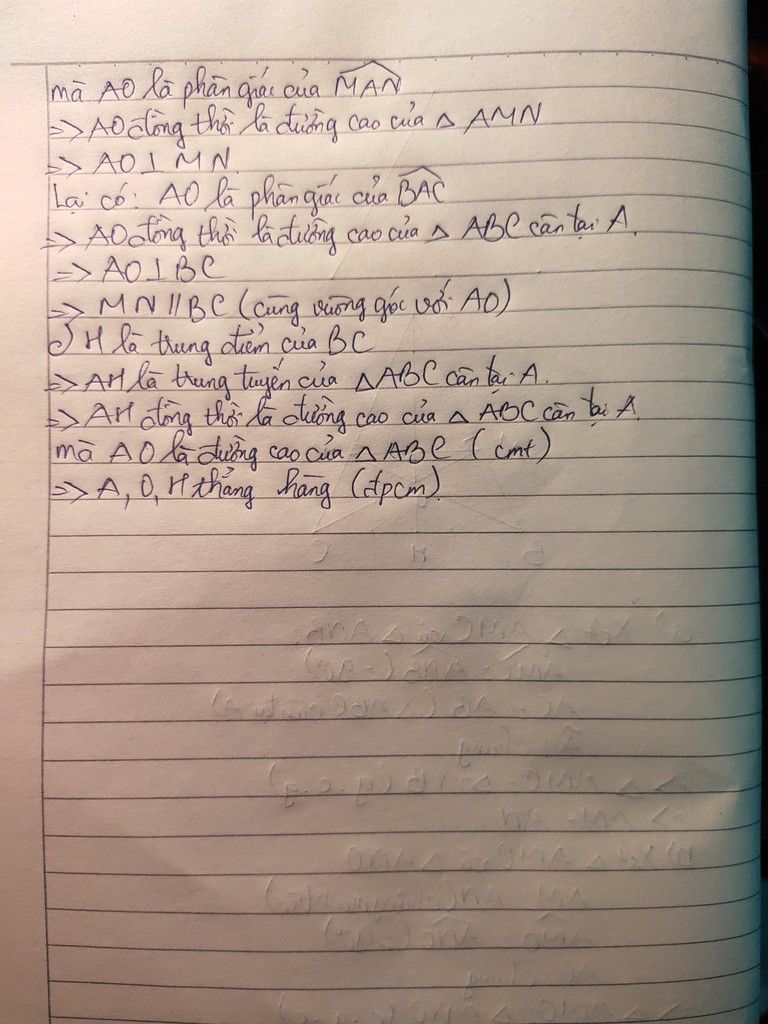 mà AO là phân giác của MAN
=> AO đồng thời là đường cao của △ AMN
=> AO ⊥ MN.
Lại có: AO là phân giác của BAC
=> AO đồng thời là đường cao của △ ABC cân tại A.
=> AO ⊥ BC
=> MN // BC (cùng vuông góc với AO)
c) H là trung điểm của BC
=> AH là trung tuyến của △ABC cân tại A.
=> AH đồng thời là đường cao của △ ABC cân tại A.
mà AO là đường cao của △ ABC (cmt)
=> A, O, H thẳng hàng (đpcm).